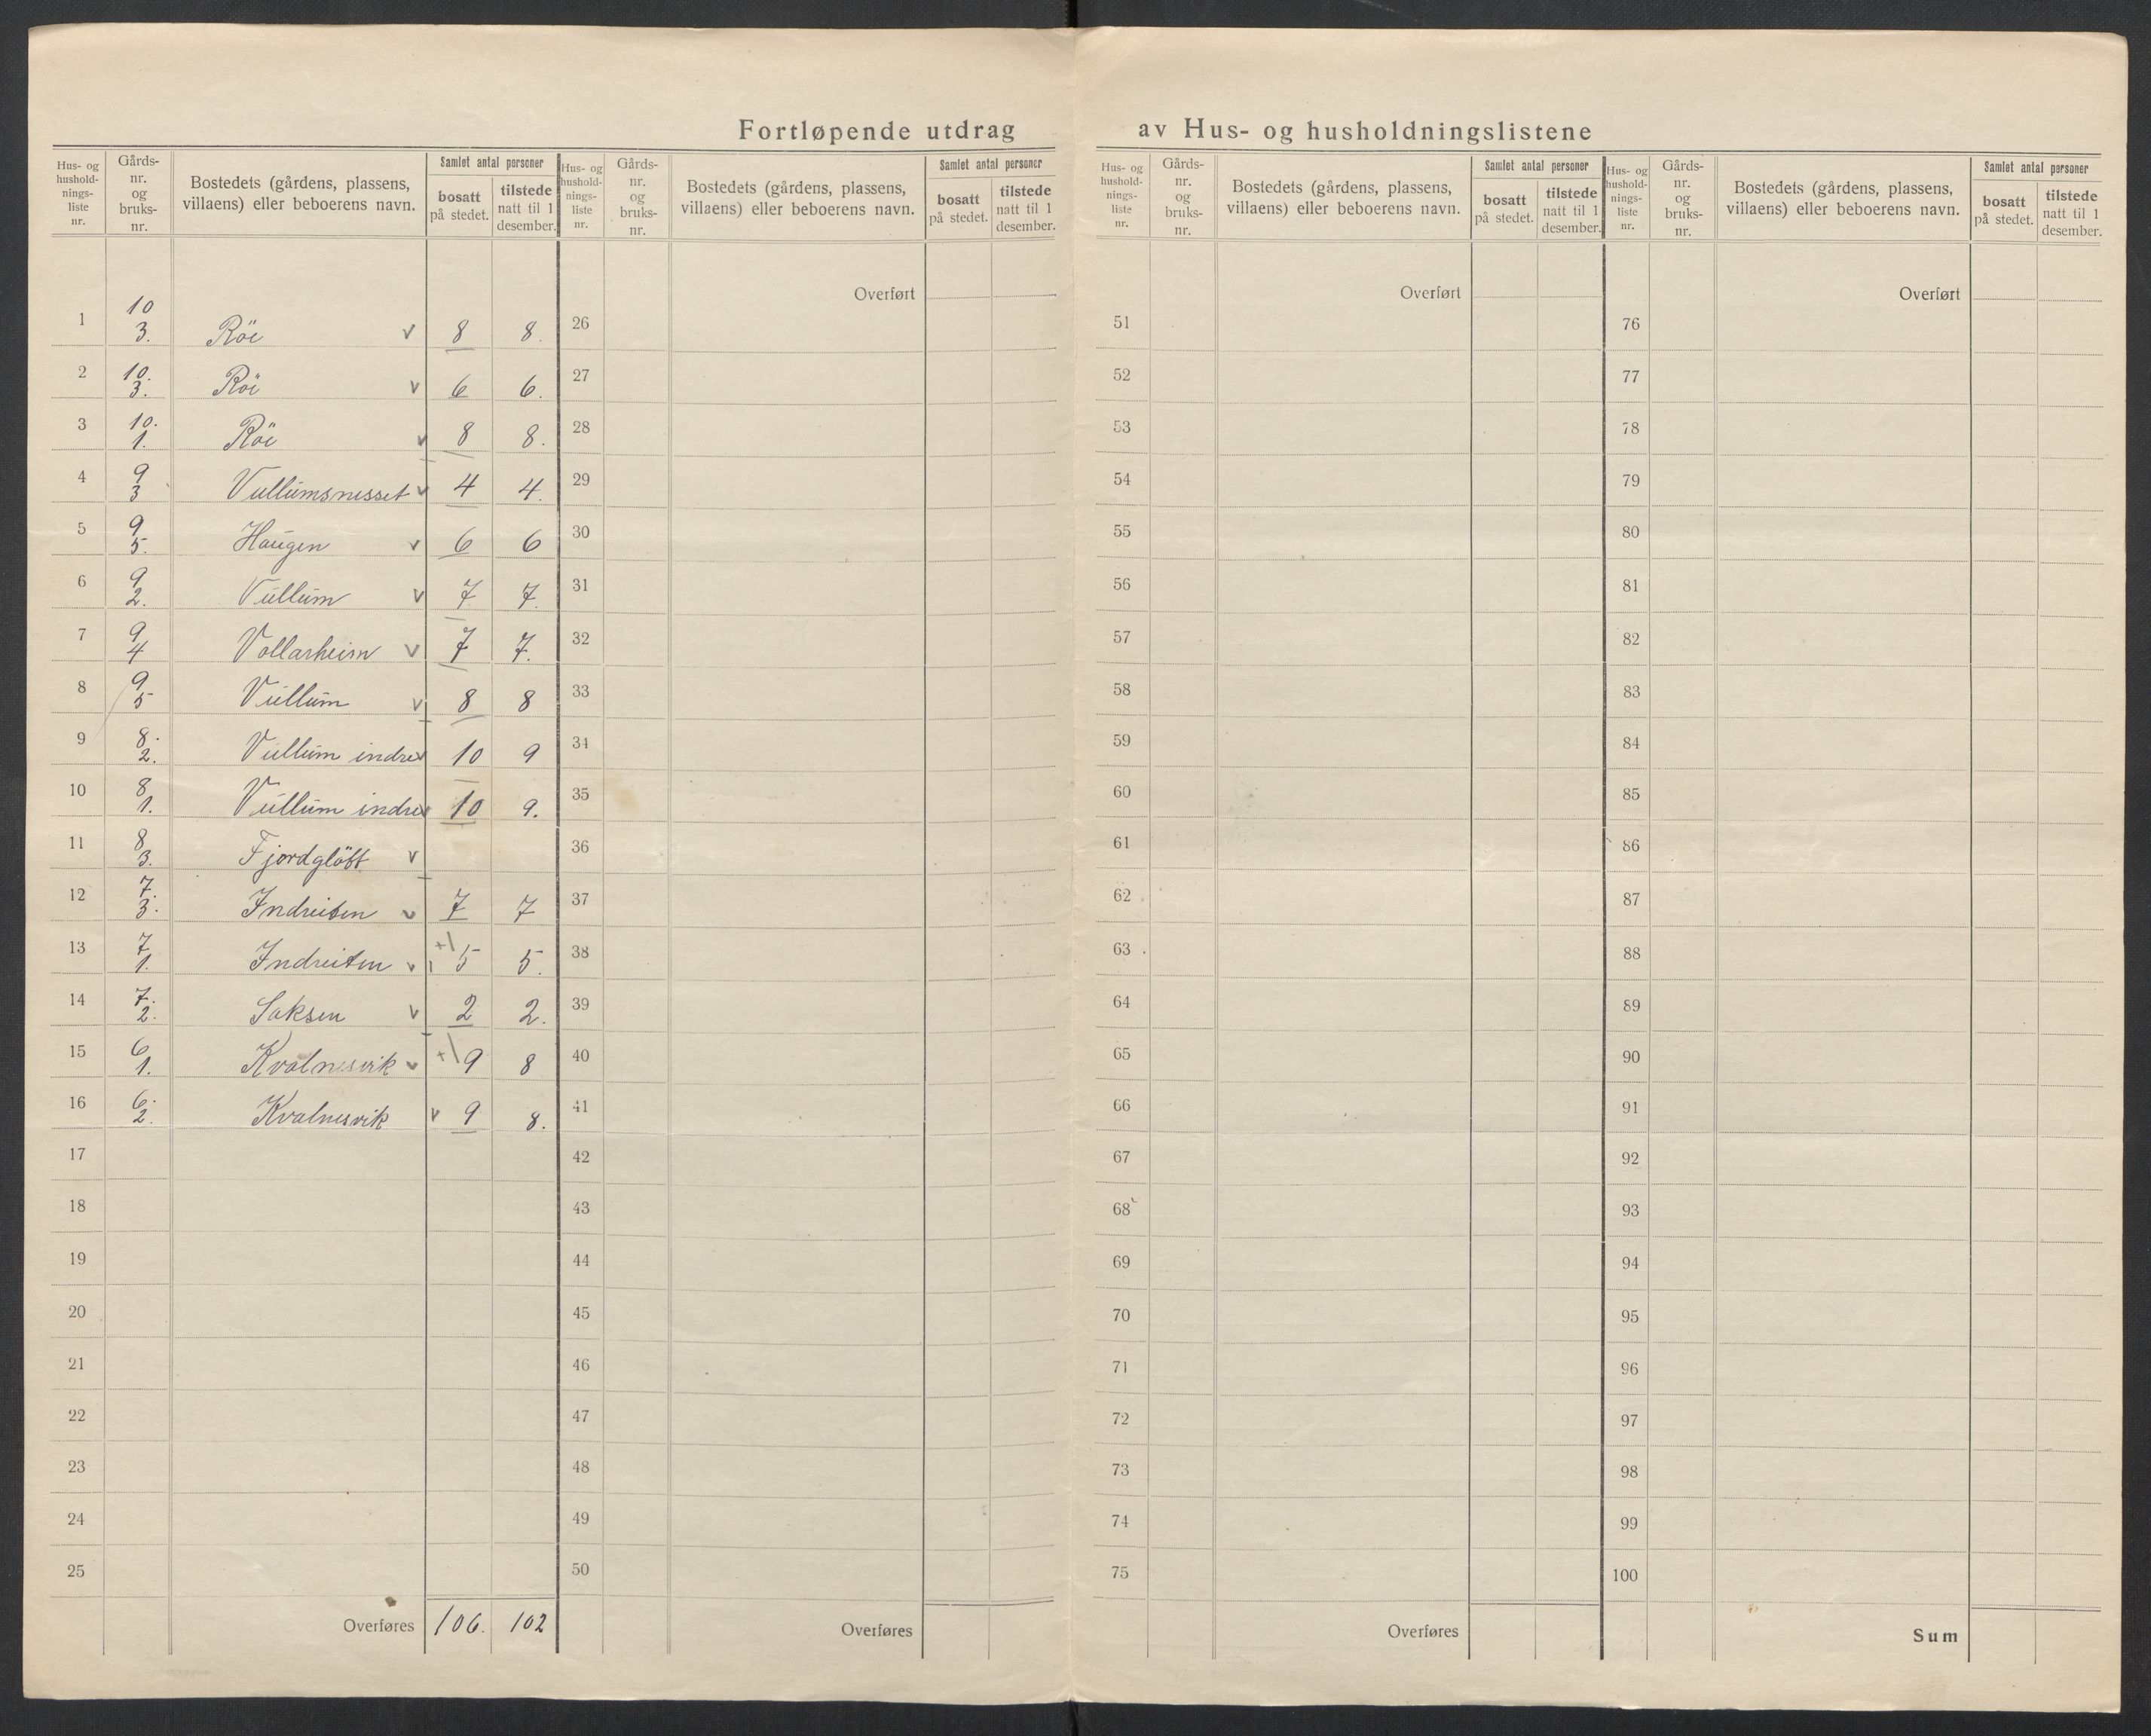 Fortløpende utdrag av Hus- og husholdningslistene
Hus- og hushold-nings-liste nr. | Gårds-nr. og bruks-nr. | Bostedets (gårdens, plassens, villaens) eller beboerens navn. | Samlet antal personer bosatt på stedet. | tilstede natt til 1 desember.
Hus- og hushold-nings-liste nr. | Gårds-nr. og bruks-nr. | Bostedets (gårdens, plassens, villaens) eller beboerens navn. | Samlet antal personer bosatt på stedet. | tilstede natt til 1 desember.
Hus- og hushold-nings-liste nr. | Gårds-nr. og bruks-nr. | Bostedets (gårdens, plassens, villaens) eller beboerens navn. | Samlet antal personer bosatt på stedet. | tilstede natt til 1 desember.
Hus- og hushold-nings-liste nr. | Gårds-nr. og bruks-nr. | Bostedets (gårdens, plassens, villaens) eller beboerens navn. | Samlet antal personer bosatt på stedet. | tilstede natt til 1 desember.
Overført Overført Overført
1 10 3. Röe v 8 8. 26 51 76
2 10. 3. Röe v 6 6. 27 52 77
3 10. 1. Röe v 8 8. 28 53 78
4 9 3 Vullumsnesset v 4 4. 29 54 79
5 9 5. Haugen v 6 6 30 55 80
6 9 2. Vullum v 7 7. 31 56 81
7 9 4 Vollarheim v 7 7. 32 57 82
8 9 5 Vullum v 8 8 33 58 83
9 8. 2. Vullum indre v 10 9 34 59 84
10 8 1. Vullum indre v 10 9. 35 60 85
11 8 3. Fjordglött v 36 61 86
12 7. 3. Indreiten v 7 7 37 62 87
13 7 1. Indreiten v +1 5 5. 38 63 88
14 7. 2. Saksen v 2 2. 39 64 89
15 6 1. Kvalnesvik v +1 9 8 40 65 90
16 6. 2. Kvalnesvik v 9 8. 41 66 91
17 42 67 92
18 43 68 93
19 44 69 94
20 45 70 95
21 46 71 96
22 47 72 97
23 48 73 98
24 49 74 99
25 50 75 100
Overføres 106. 102 Overføres Overføres Sum